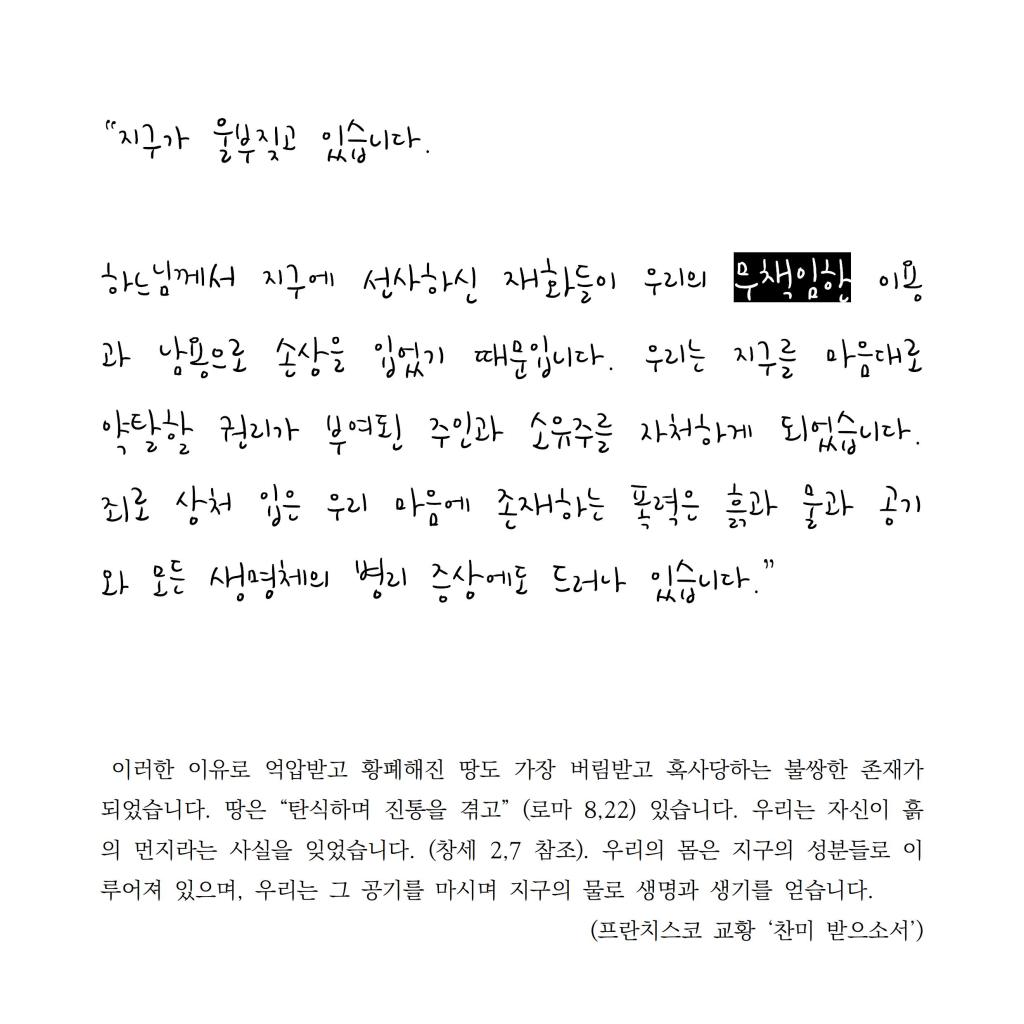 “지구가 울부짖고 있습니다.
하느님께서 지구에 선사하신 재화들이 우리의 무책임한 이용
과 남용으로 손상을 입었기 때문입니다. 우리는 지구를 마음대로
약탈할 권리가 부여된 주인과 소유주를 자처하게 되었습니다.
죄로 상처 입은 우리 마음에 존재하는 폭력은 흙과 물과 공기
와 모든 생명체의 병리 증상에도 드러나 있습니다.”
이러한 이유로 억압받고 황폐해진 땅도 가장 버림받고 혹사당하는 불쌍한 존재가
되었습니다. 땅은 “탄식하며 진통을 겪고” (로마 8,22) 있습니다. 우리는 자신이 흙
의 먼지라는 사실을 잊었습니다. (창세 2,7 참조). 우리의 몸은 지구의 성분들로 이
루어져 있으며, 우리는 그 공기를 마시며 지구의 물로 생명과 생기를 얻습니다.
(프란치스코 교황 ‘찬미 받으소서’)